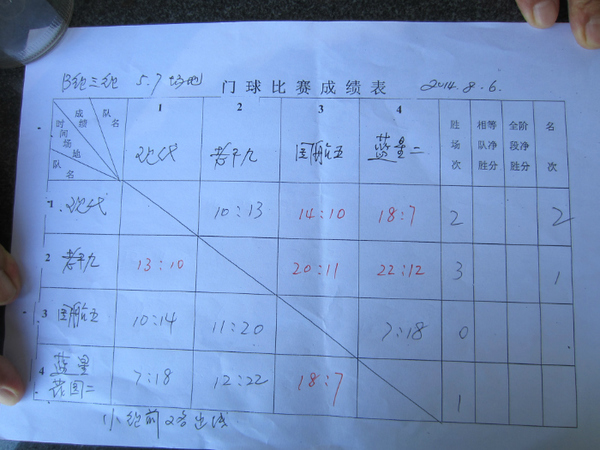 B组三组 5.7场地 门球比赛成绩表 2014.8.6.
成绩 队名 时间场地 队名 1 2 3 4 胜场次 相等队净胜分 全阶段净胜分 名次
现代 老干九 国航五 蓝星二
1. 现代 10:13 14:10 18:7 2 2
2 老干九 13:10 20:11 22:12 3 1
3 国航五 10:14 11:20 7:18 0
4 蓝星花园二 7:18 12:22 18:7 1
小组前2名出线